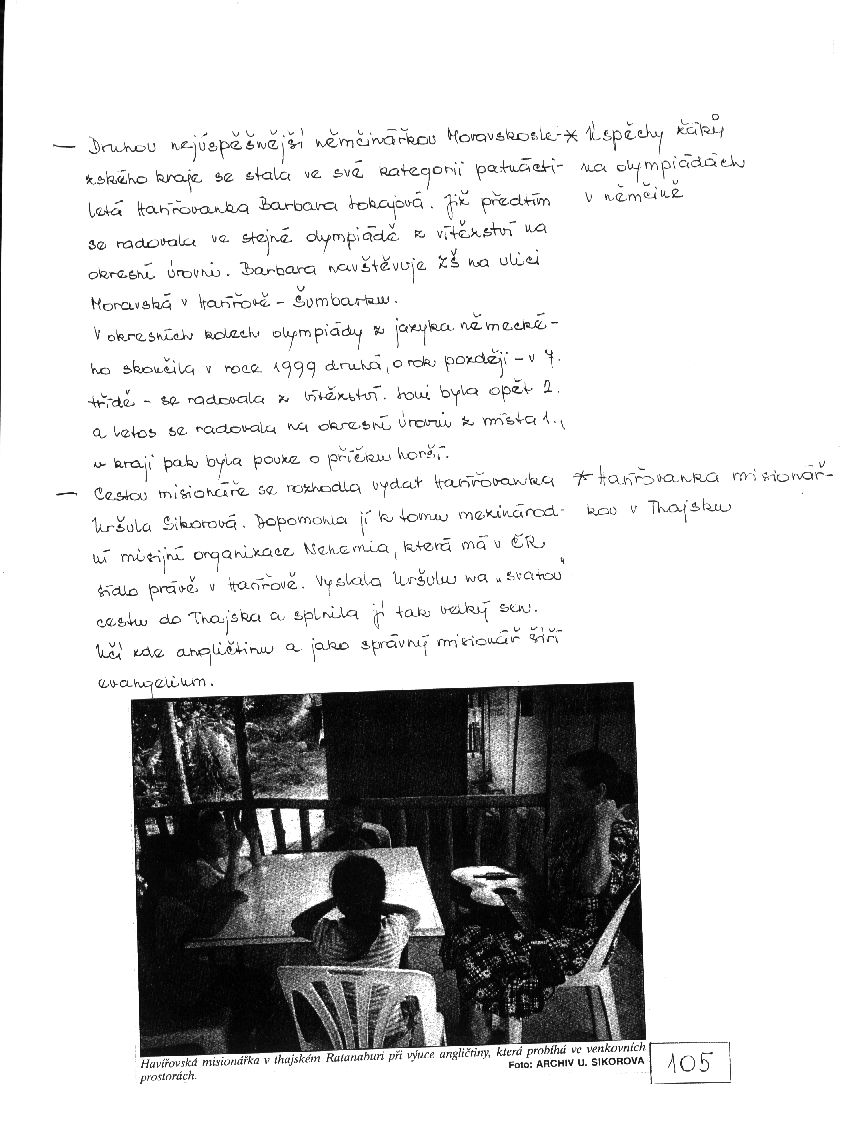 — Druhou nejúspěšnější němčinářkou Moravskosle-
zského kraje se stala ve své kategorii patnácti-
letá Havířovanka Barbara Tokajová. Již předtím
se radovala ve stejné olympiádě z vítězství na
okresní úrovni. Barbara navštěvuje ZŠ na ulici
Moravská v Havířově - Šumbarku.
V okresních kolech olympiády z jazyka německé-
ho skončila v roce 1999 druhá, o rok později - v 7.
třídě - se radovala z vítězství. Loni byla opět 2.
a letos se radovala na okresní úrovni z místa 1.,
v kraji pak byla pouze o příčku horší.
* Úspěchy žáků
na olympiádách
v němčině
— Cestou misionáře se rozhodla vydat Havířovanka
Uršula Sikorová. Dopomohla jí k tomu mezinárod-
ní misijní organizace Nehemia, která má v ČR
sídlo právě v Havířově. Vyslala Uršulu na „svatou"
cestu do Thajska a splnila jí tak velký sen.
Učí zde angličtinu a jako správný misionář šíří
evangelium.
* Havířovanka misionář-
kou v Thajsku
Havířovská misionářka v thajském Ratanaburi při výuce angličtiny, která probíhá ve venkovních
prostorách.
Foto: ARCHIV U. SIKOROVA
105